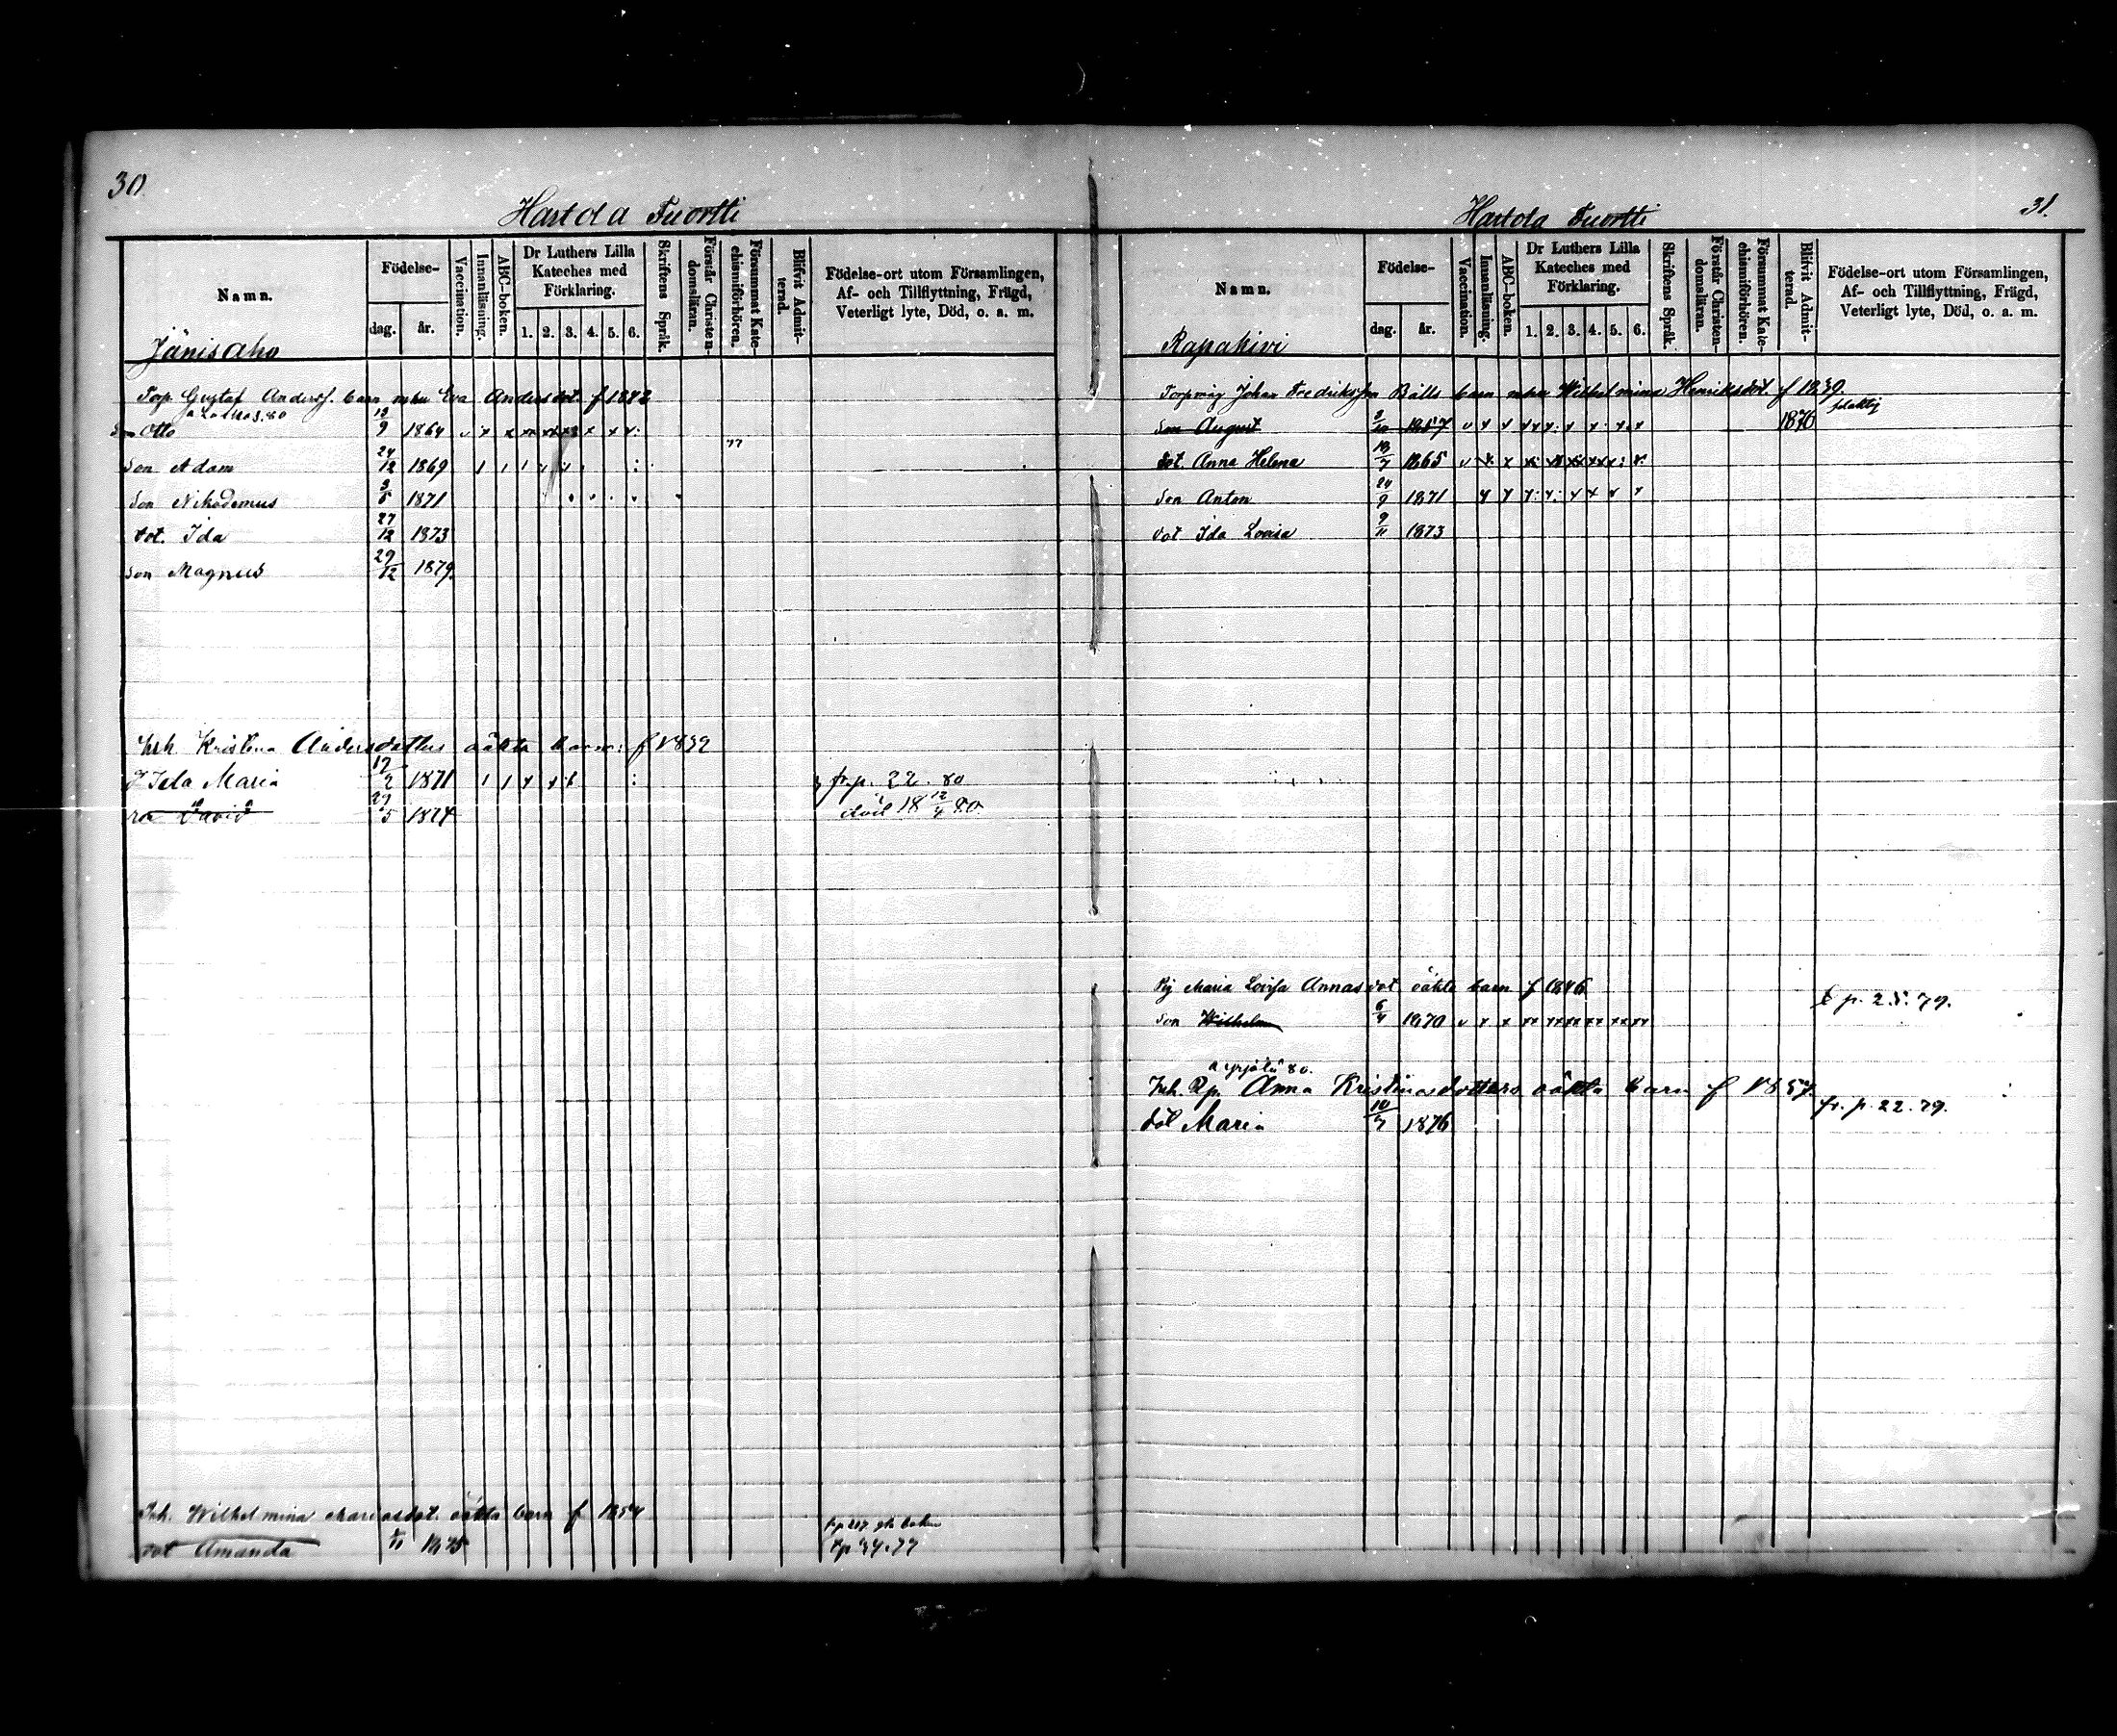 30.
Hartola Tuortti
Namn.
Födelse-
dag.
år.
Vaccination.
Innanläsning.
ABC-boken.
Dr Luthers Lilla
Kateches med
Förklaring.
1. 2. 3. 4. 5. 6.
Skriftens Språk.
Förstår Christen-
domsläran.
Försummat Kate-
chismiförhören.
Blifvit Admit-
terad.
Födelse-ort utom Församlingen,
Af- och Tillflyttning, Frägd,
Veterligt lyte, Död, o. a. m.
Jänisaho
Torp. Gustaf Anderss. barn mhu Eva Andersdot. f 1842
Son Otto 12/9 1864
77
Son Adam 24/12 1869
Son Nikodemus 3/5 1871
dot. Ida 27/12 1873
Son Magnus 29/12 1879.
Inh Kristina Andersdotters oäkta barn: f 1839
Ida Maria 17/2 1871 fr. p. 22. 80
David 29/5 1874 död 18 12/4 80.
Inh. Wilhelmina Mariasdot. oäkta barn f 1854
dot Amanda 1875
31.
Hartola Tuortti
Namn.
Födelse-
dag.
år.
Vaccination.
Innanläsning.
ABC-boken.
Dr Luthers Lilla
Kateches med
Förklaring.
1. 2. 3. 4. 5. 6.
Skriftens Språk.
Förstår Christen-
domsläran.
Försummat Kate-
chismiförhören.
Blifvit Admit-
terad.
Födelse-ort utom Församlingen,
Af- och Tillflyttning, Frägd,
Veterligt lyte, Död, o. a. m.
Rapakivi
Johan Fredriksson Bälls barn mhu Wilhelmina Henriksdot. f 1839.
Son August 1857 1876
dot. Anna Helena 18/7 1865
Son Anton 24/9 1871
dot Ida Lovisa 9/11 1873
Pig Maria Lovisa Annasdot oäkta barn f 1846
t p. 25. 79.
Son Wilhelm 6/4 1870
Inh. Anna Kristinasdotters oäkta barn f 1857.
fr. p. 22. 79.
dot Maria 10/7 1876